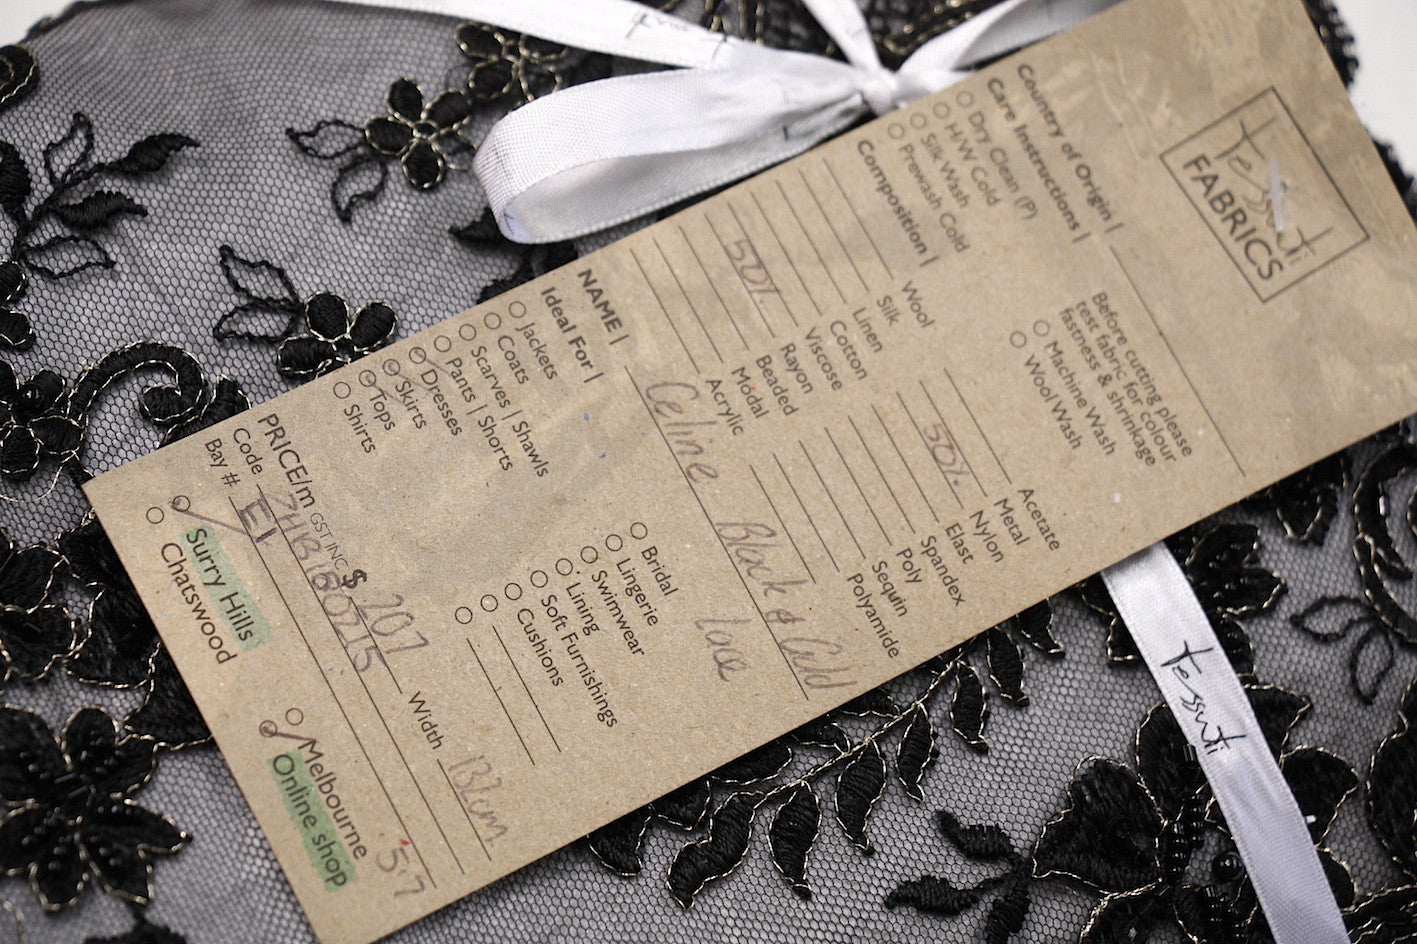 tessuti
FABRICS
Country of Origin |
Care Instructions |
Dry Clean (P)
H/W Cold
Silk Wash
Prewash Cold
Before cutting please
test fabric for colour
fastness & shrinkage
Machine Wash
Wool Wash
Composition |
Wool
Silk
Linen
Cotton
Viscose
50% Rayon
Beaded
Modal
Acrylic
Acetate
Metal
50% Nylon
Elast
Spandex
Poly
Sequin
Polyamide
NAME | Celine Black & Gold
Lace
Ideal For |
Jackets
Coats
Scarves | Shawls
Pants | Shorts
Dresses
Skirts
Tops
Shirts
Bridal
Lingerie
Swimwear
Lining
Soft Furnishings
Cushions
PRICE/m GST INC $ 207 Width 131cm
Code
Bay # E1
5.7
Surry Hills
Chatswood
Melbourne
Online shop
tessuti